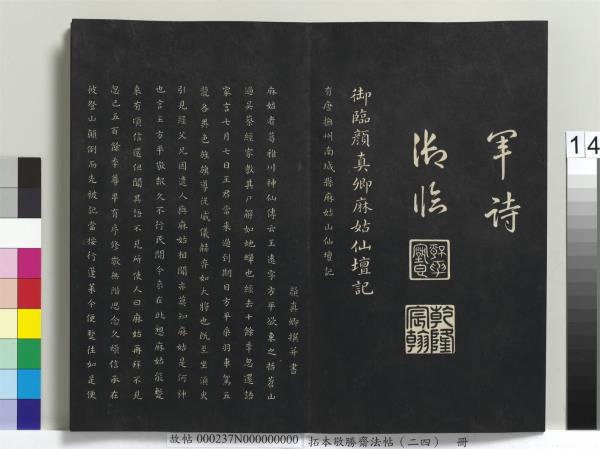 軍詩
御臨
乾隆宸翰
御臨顏真卿麻姑仙壇記
有唐撫州南城縣麻姑山仙壇記
顏真卿撰并書
麻姑者葛稚川神仙傳云王遠字方平欲東之括蒼山
過吳蔡經家教其尸解如蛇蟬也經去十餘年忽還語
家言七月七日王君當來過到期日方平乘羽車駕五
龍各異色旌旗導從威儀赫弈如大將也既至坐須臾
引見經父兄因遣人與麻姑相聞亦莫知麻姑是何神
也言王方平敬報久不行民間今來在此想麻姑能暫
來有頃信還但聞其語不見所使人曰麻姑再拜不見
忽已五百餘年尊卑有序修敬無階思念久煩信承在
彼登山顛倒而先被記當按行蓬萊今便暫往如是便
14
故帖 000237N000000000
拓本敬勝齋法帖（二四） 冊